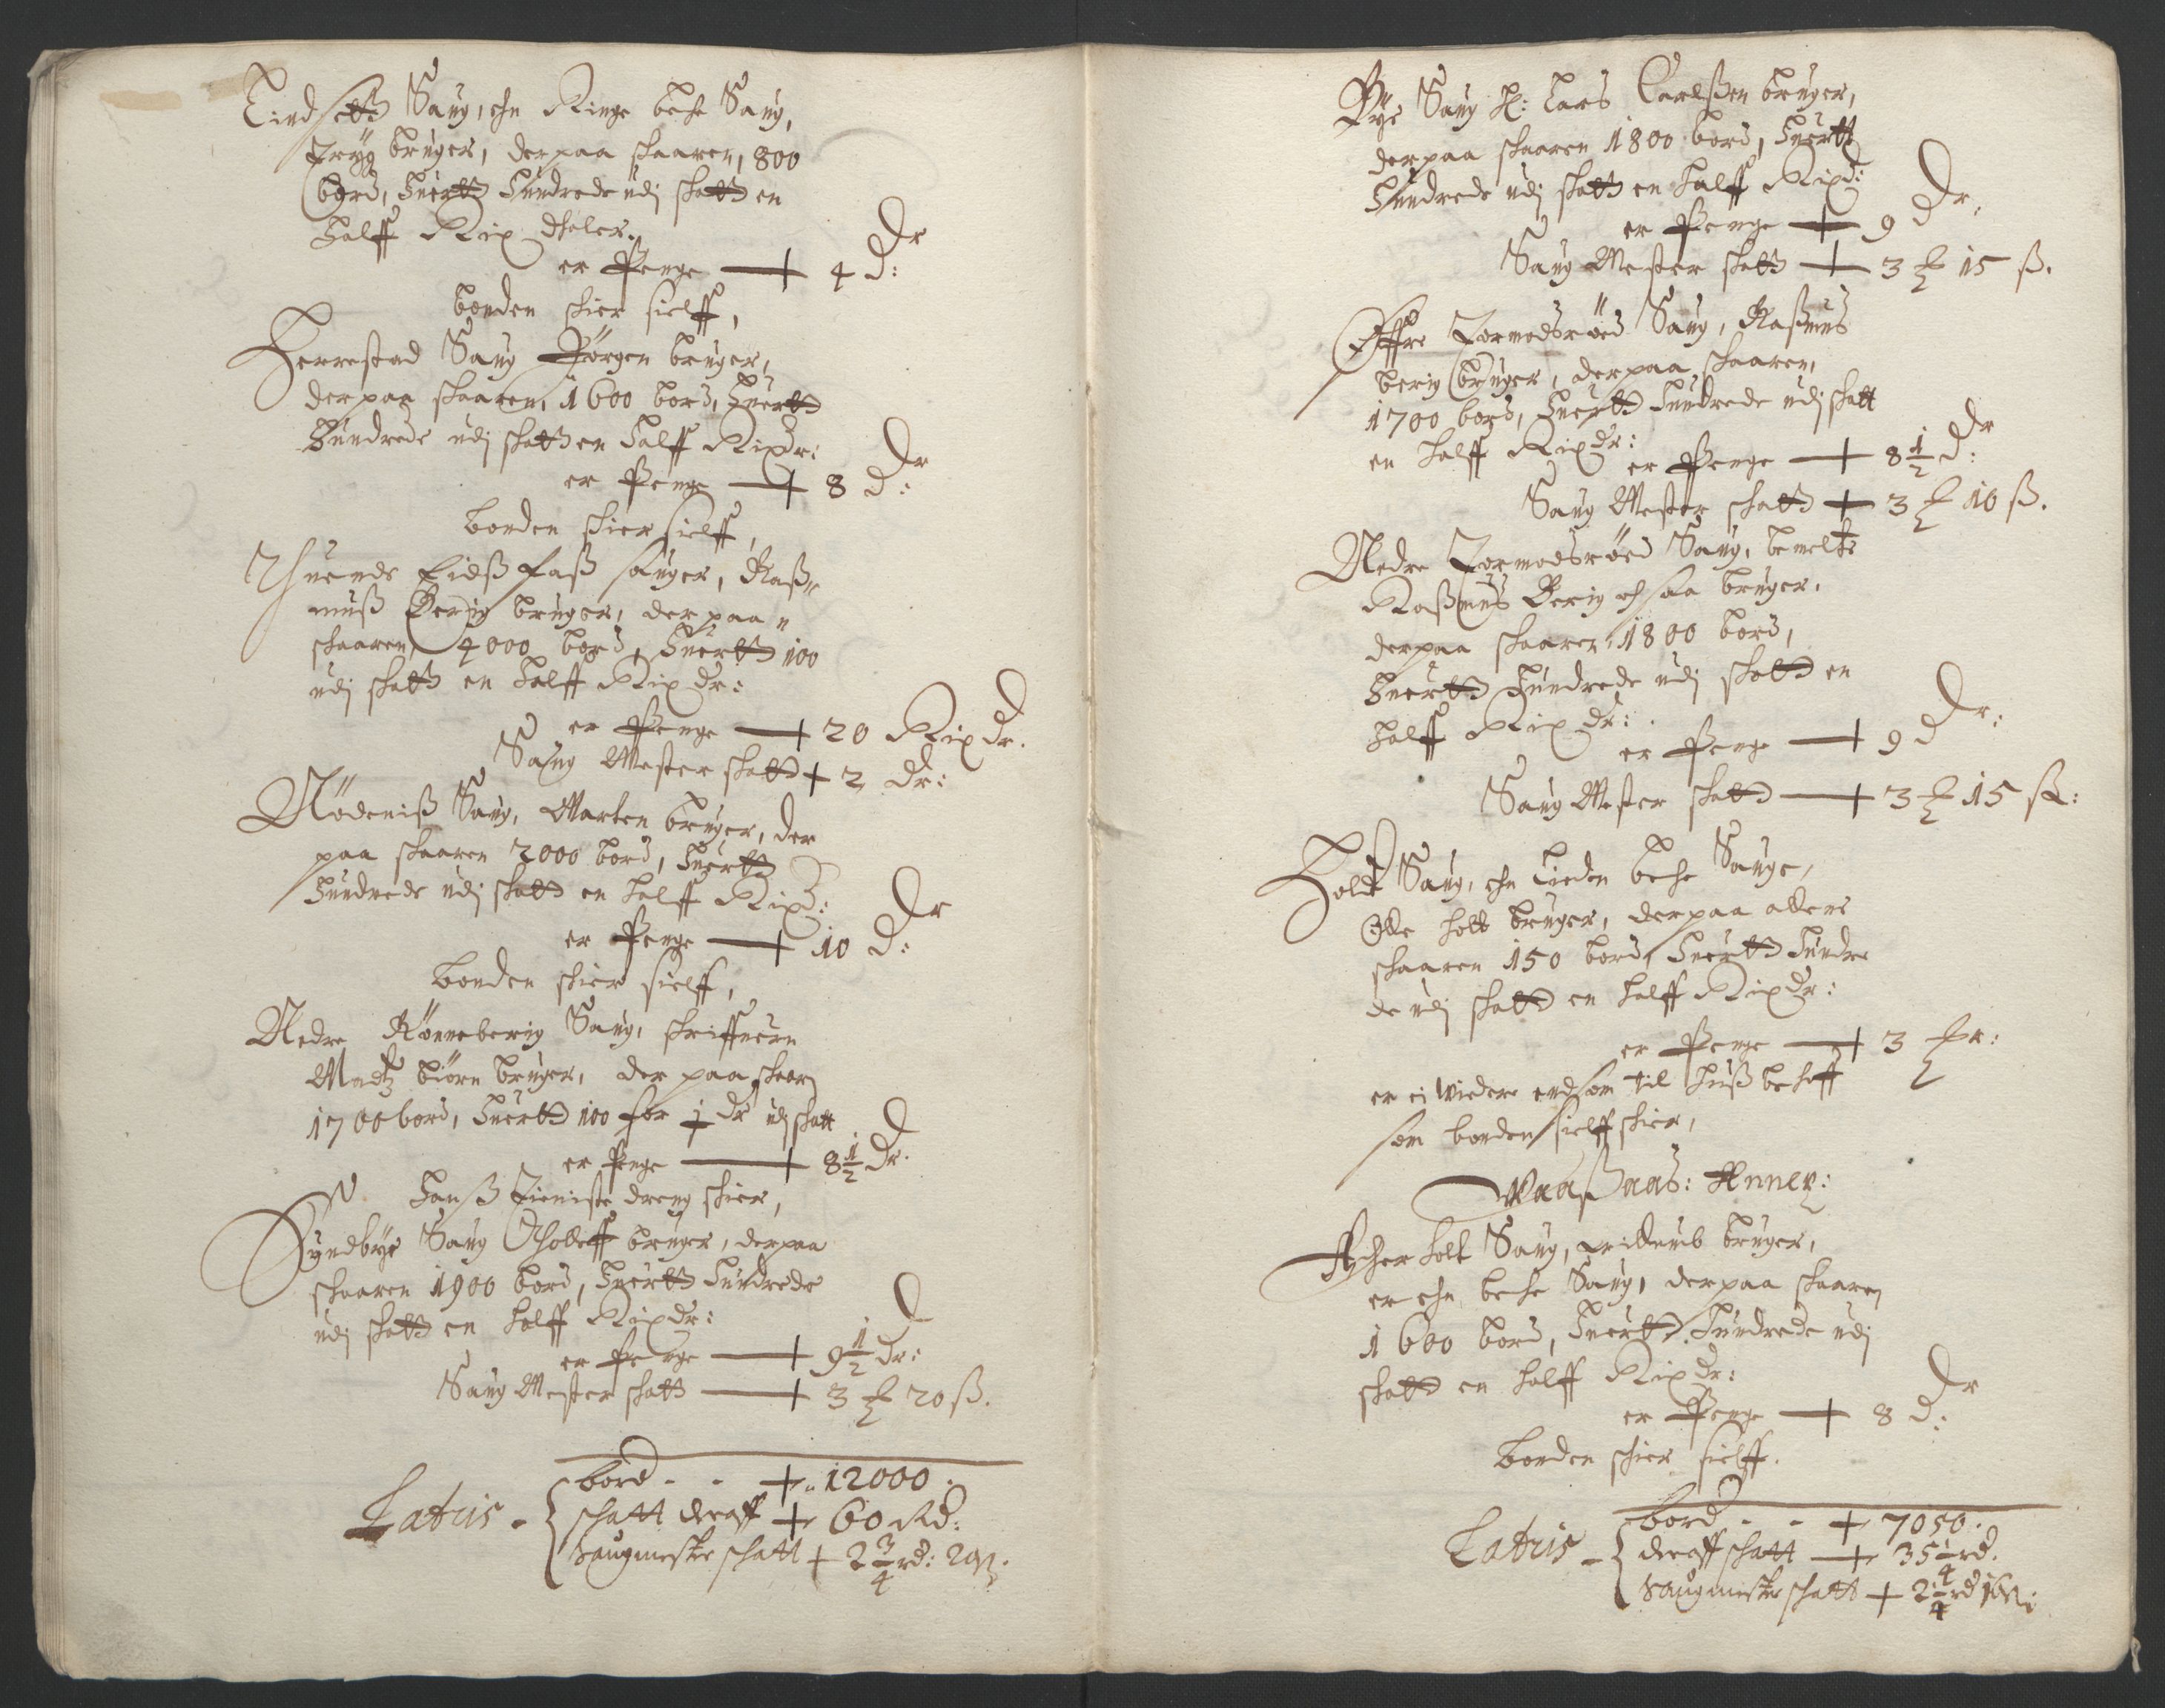 Lindsetth Saug, ehn Ringe beche Saug,
Tryg bruger, derpaa skaaren, 800
bord, huertt hundrede udj skatt en
halff Rix dhaler.
er Penge — 4 Dr:
bonden skier sielff,
Herrestad Saug Jörgen bruger,
derpaa skaaren, 1600 bord, huertt
hundrede udj skatt en halff Rixdr:
er Penge — 8 Dr:
bonden skier sielff,
Thuende Eidssfass sauger, Rass„
muss Berig bruger, derpaa„
skaaren 4000 bord, huertt 100
udj skatt en halff Rix dr:
er Penge — 20 Rix dr.
Saug Mester skatt + 2 dr:
Nödeniss Saug, Marten bruger, der
paa skaaren 2000 bord, huertt
hundrede udj skatt en halff Rixd:
er Penge — 10 Dr:
bonden skier sielff,
Nedre Rönneberig Saug, skriffuern
Madtz biörn bruger, der paa skaaren
1700 bord, huertt 100 for ½ dr udj skatt
er Penge — 8½ Dr.
hanss Tieniste dreng skier,
Syndbye Saug Tholleff bruger, derpaa
skaaren 1900 bord, huertt hundrede
udj skatt en halff Rixdr:
er Penge — 9½ Dr:
Saug Mester skatt — 3 ₤ 20 ß.
Latus - bord - - + 12000.
skatt deraff + 60 Rd:
Saugmester skatt + 2¾ rd: 20ß.
Rÿe Saug H: Lars Carlssen bruger,
derpaa skaaren 1800 bord, huertt
hundrede udj skatt en halff Rixd:
er Penge — 9 Dr:
Saug Mester skatt — 3 ₤ 15 ß.
Öffre Tormodsröed Saug, Rassmus
berig bruger, derpaa skaaren,
1700 bord, huertt hundrede udj skatt
en halff Rixdr:
er Penge — 8½ Dr:
Saug Mester skatt + 3 ₤ 10 ß.
Nedre Tormodsröed Saug, bemelte
Rassmus Berig ochsaa bruger,
derpaa skaaren 1800 bord,
huertt hundrede udj skatt en
halff Rix dr:
er Penge — 9 Dr:
Saug Mester skatt — 3 ₤ 15 sk:
Holte Saug, ehn Lieden beche Sauge,
Olle holt bruger, derpaa allens
skaaren 150 bord, huertt hundre
de udj skatt en halff Rixdr:
er Penge — 3 ₤r:
er ei widere end som til huss behoff
som bonden sielff skier,
Waassaas: Annex:
Ascherholt Saug, bruger,
er ehn beche Saug, derpaa skaaren
1600 bord, huertt hundrede udj
skatt en halff Rixdr:
er Penge — 8 Dr:
bonden skier sielff.
Latus - bord - - + 7050.
deraff skatt — 35¼ rd.
Saugmester skatt + 2¼ rd 16ß: